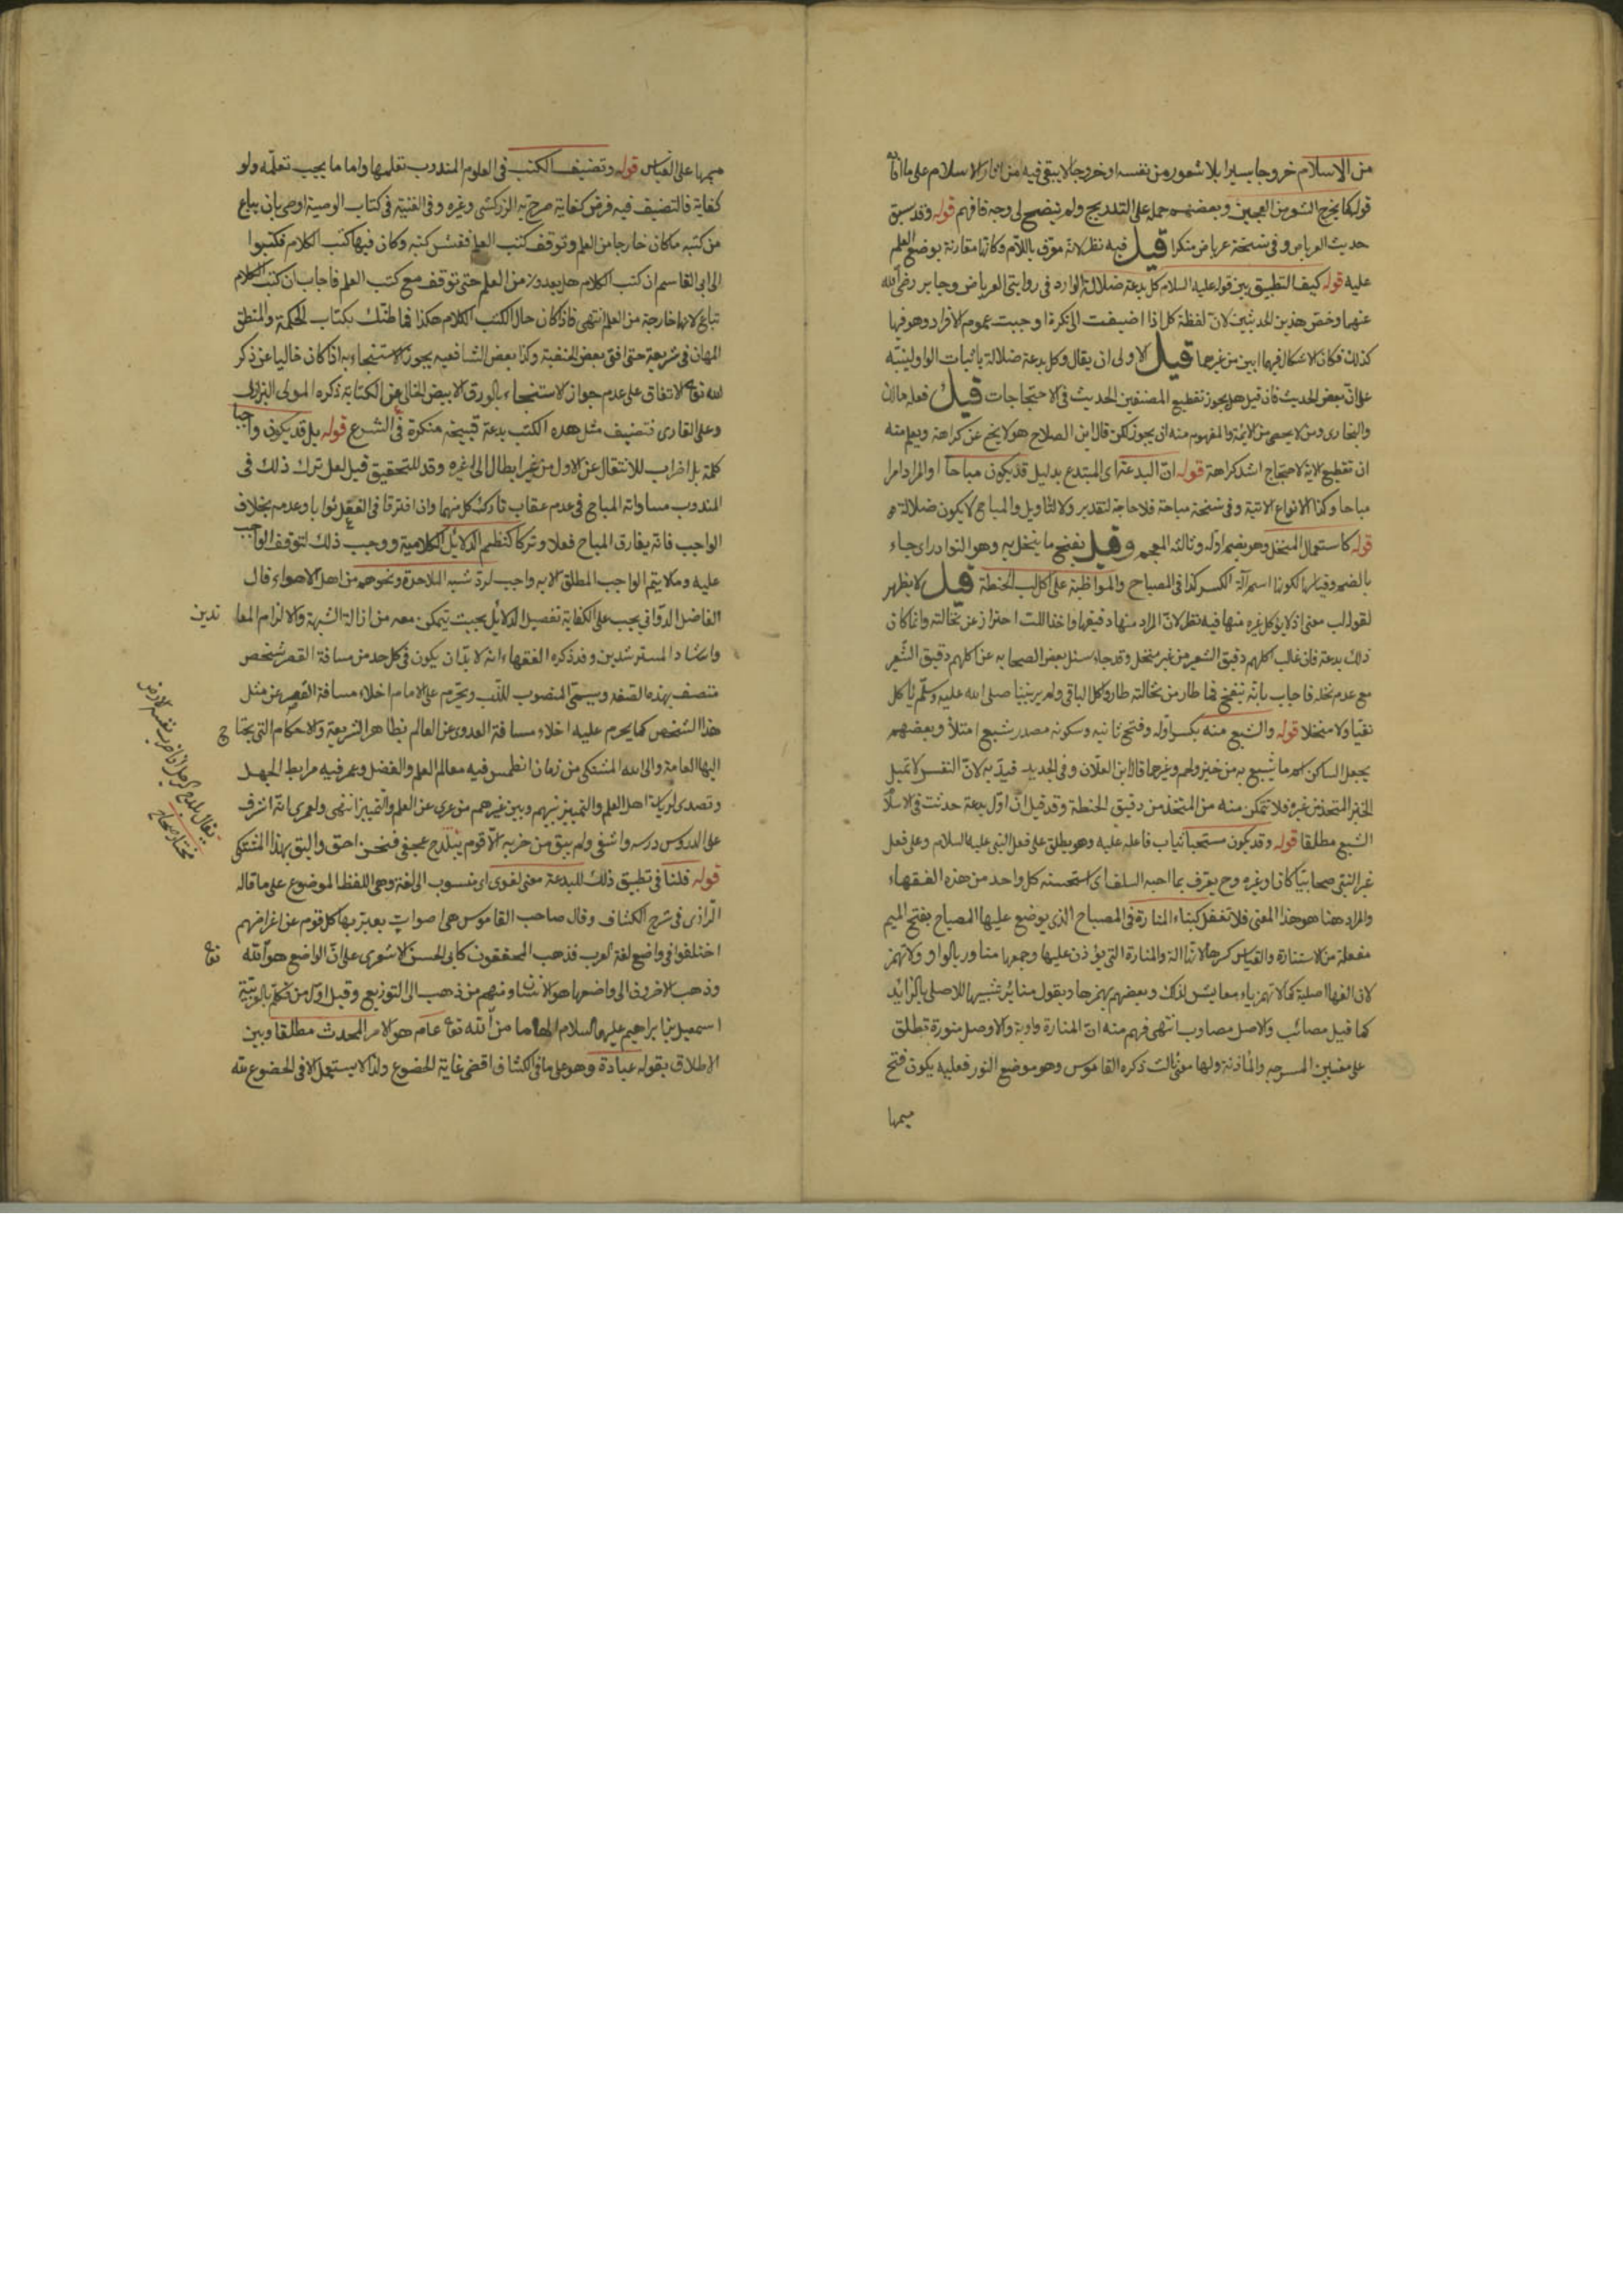 من الاسلام خروجا يسيرا بلا شعور من نفسه او خروجا لا يبقى فيه من انوار الاسلام على ما افاده
قوله كما يخرج الشعر من العجين وبعضهم حمله على التدريج ولم يتضح لى وجه فافهم قوله وقد سبق
حديث العرباض وفى نسخة عرباض منكرا قيل فيه نظر لانه معرف باللام وكانها مقارنة بوضع العلم
عليه قوله كيف التطبيق بين قوله عليه السلام كل بدعة ضلالة الوارد فى روايتى العرباض وجابر رضى الله
عنهما وخص هذين الحديثين لان لفظة كل اذا اضيفت الى نكرة اوجبت عموم الافراد وهو فيها
كذلك فكان الاشكال فيهما ابين من غيرهما قيل الاولى ان يقال وكل بدعة ضلالة باثبات الواو لينبه
على ان بعض الحديث فان قيل هل يجوز تقطيع المصنفين الحديث فى الاحتجاجات قيل فعله مالك
والبخارى ومن لا يحصى من الائمة والمفهوم منه ان يجوز لكن قال ابن الصلاح هو لا يخ عن كراهة ويعلم منه
ان تقطيع لاية لاحتجاج اشد كراهة قوله ان البدعة اى المبتدع بدليل قد يكون مباحا او المراد امرا
مباحا وكذا الانواع الاتية وفى نسخة مباحة فلا حاجة لتقدير ولا لتأويل والمباح لا يكون ضلالة
قوله كاستعمال المنخل وهو بضم اوله وثالثه المعجم وقيل بفتح ما ينخل به وهو النوادر اى جاء
بالضم وقياسها الكسر اسم آلة الكسر كذا فى المصباح والمواظبة على اكل لب الحنطة قيل لا يظهر
لقوله لب معنى اذ لا يؤكل غيره منها فيه نظر لان المراد منها دقيقها واخذ اللب احتراز عن نخالته وانما كان
ذلك بدعة فان غالب اكلهم دقيق الشعير من غير منخل وقد جاء سئل بعض الصحابه عن اكلهم دقيق الشعير
مع عدم نخله فاجاب بانه ينفخ فما طار من نخالته طار واكل الباقى ولم ير نبينا صلى الله عليه وسلم ياكل
نقيا ولا منخلا قوله والشبع منه بكسر اوله وفتح ثانيه وسكونه مصدر شبع امتلأ وبعضهم
يجعل الساكن اسم ما يشبع به من خبز ولحم وغيرهما قال ابن العلان وفى الجديد قيد به لان النفس لا تميل
الخبز المتخذ من غيره فلا تمكن منه من المتخذ من دقيق الحنطة وقد قيل ان اول بدعة حدثت فى الاسلام
الشبع مطلقا قوله وقد يكون مستحبا يثاب فاعله عليه وهو يطلق على فعل النبى عليه السلام وعلى فعل
غير النبى صحابيا كان او غيره وح يعرف بما احبه السلف اى استحسنه كل واحد من هذه الفقهاء
والمراد هنا هو هذا المعنى فلا تغفل كبناء المنارة فى المصباح الذى يوضع عليها المصباح بفتح الميم
مفعلة من الاستنارة والقياس كسرها لانها الة والمنارة التى يؤذن عليها وجمعها مناور بالواو ولا تهمز
لان الفها اصلية كما لا تهمز ياء معايش لذلك وبعضهم يهمزها ويقول منائر تشبيها للاصلى بالزائد
كما قيل مصائب والاصل مصاوب انتهى فهم منه ان المنارة واوية والاصل منورة تطلق
على معنيين المسرجه والمأذنة ولها معنى ثالث ذكره القاموس وهو موضع النور فعليه يكون فتح
ميمها
ميمها على القياس قوله وتصنيف الكتب فى العلوم المندوب تعلمها واما ما يجب تعلمه ولو
كفاية فالتصنيف فيه فرض كفاية صرح به الزركشى وغيره وفى القنية فى كتاب الوصية اوصى بان يباع
من كتبه ما كان خارجا من العلم وتوقف كتب العلم ففتش كتبه وكان فيها كتب الكلام فكتبوا
الى ابى القاسم ان كتب الكلام هل يعدون من العلم حتى توقف مع كتب العلم فاجاب ان كتب الكلام
تباع لانها خارجة من العلم انتهى فاذا كان حال الكتب الكلام هكذا فما ظنك بكتاب الحكمة والمنطق
المهان فى شريعة حتى افتى بعض الحنفية وكذا بعض الشافعيه بجواز الاستنجاء به اذا كان خاليا عن ذكر
الله تع الاتفاق على عدم جواز الاستنجاء بالورق الابيض الخالى عن الكتابة ذكره المولى البزازى
وعلى القارى فتصنيف مثل هذه الكتب بدعة قبيحة منكرة فى الشرع قوله بل قد يكون واجبا
كلمة بل اضراب للانتقال عن الاول من غير ابطال الى غيره وقد للتحقيق قيل لعل ترك ذلك فى
المندوب مساواة المباح فى عدم عقاب تارك كل منهما وان افترقا فى الفعل ثوابا وعدمه بخلاف
الواجب فانه يفارق المباح فعلا وتركا كنظم الدلائل الكلامية ووجب ذلك لتوقف الواجب
عليه وما لا يتم الواجب المطلق الا به واجب لرد شبه الملاحدة ونحوهم من اهل الاهواء قال
الفاضل الدوانى يجب على الكفاية تفصيل الدلائل بحيث يتمكن معه من ازالة الشبهة والزام المعا
ندين
وارشاد المسترشدين وقد ذكره الفقهاء انه لا بد ان يكون فى كل حد من مسافة القصر شخص
متصف بهذه الصفة ويسمى المنصوب للذب ويحرم على الامام اخلاء مسافة القصر عن مثل
هذا الشخص كما يحرم عليه اخلاء مسافة العدوى عن العالم بظاهر الشريعة والاحكام التى يحتاج
اليها العامة والى الله المشتكى من زمان انطمس فيه معالم العلم والفضل وعمر فيه مرابط الجهل
وتصدى لرياسة اهل العلم والتمييز بينهم وبين غيرهم من عرى عن العلم والتمييز انتهى ولعمرى انه اشرف
على الدروس درسه واشفى ولم يبق من حزبه الا قوم يتلدح عجفى فنحن احق واليق بهذا المشتكى
قوله قلنا فى تطبيق ذلك للبدعة معنى لغوى اى منسوب الى لغة وهى اللفظ الموضوع على ما قاله
الرازى فى شرح الكشاف وقال صاحب القاموس هى اصوات يعبر بها كل قوم عن اغراضهم
اختلفوا فى واضع لغة العرب فذهب المحققون كابى الحسن الاشعرى على ان الواضع هو الله تع
وذهب الاخرون الى واضعها هو الانسان ومنهم من ذهب الى التوزيع وقيل اول من تكلم بالعربية
اسمعيل بن ابراهيم عليهما السلام الهاما من الله تع عام هو الامر المحدث مطلقا وبين
الاطلاق بقوله عبادة وهو على ما فى الكشاف اقصى غاية الخضوع ولذا لا يستعمل الا فى الخضوع لله
يقال بلدح الرجل اذا ضرب بنفسه الارض
مختار صحاح